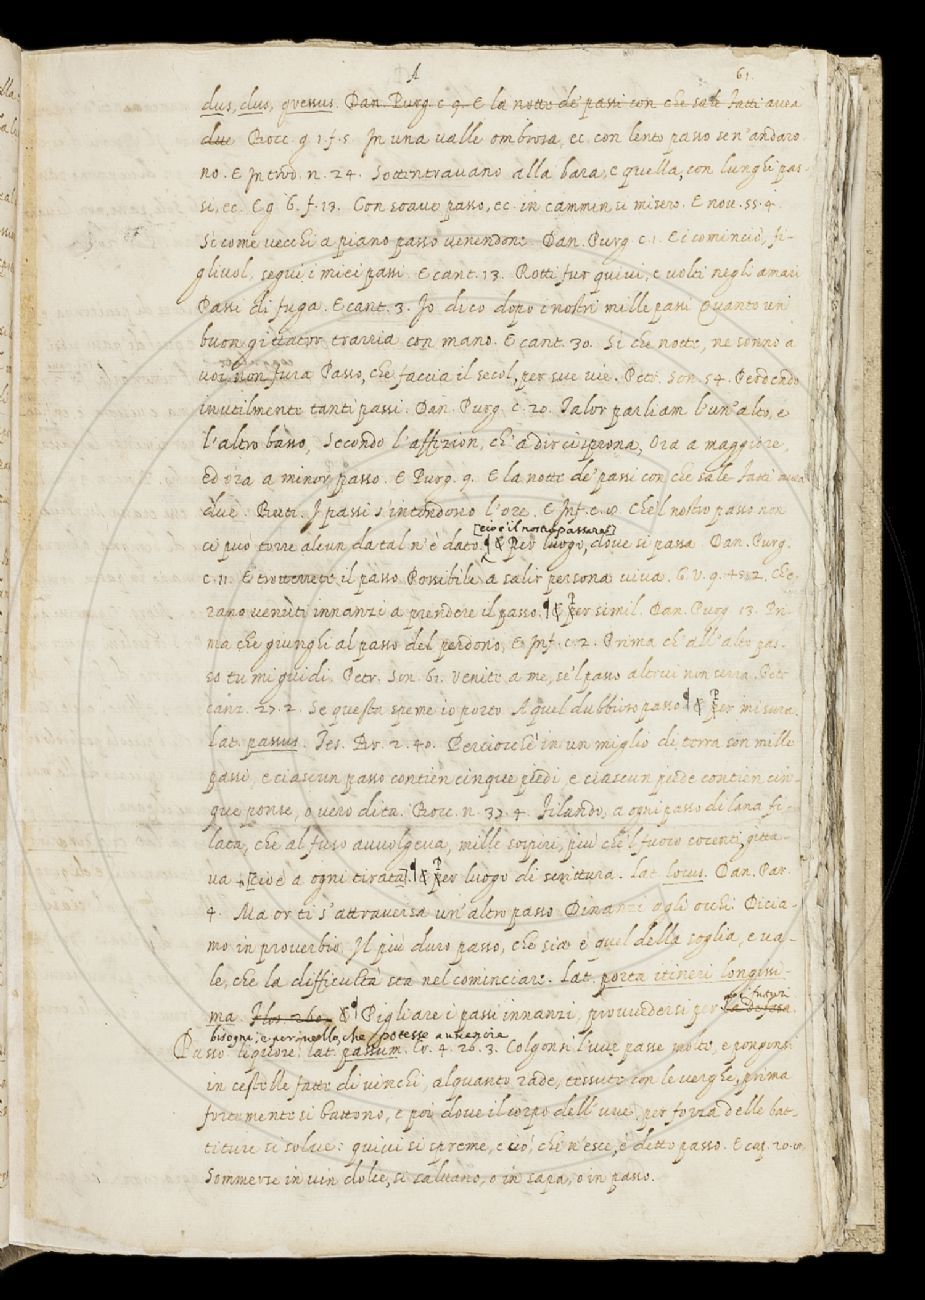 A
61.
dus, dus, gressus. Dan. Purg. c. 9. E la notte de' passi con che sale Fatti avea
due Bocc. g. 1. f. 5. In una valle ombrosa, ec. con lento passo sen' andaro
no. E Introd. n. 24. Sottentravano alla bara, e quella, con lunghi pas-
si, ec. E g. 6. f. 13. Con soave passo, ec. in cammin si misero. E nov. 55. 4.
Sì come vecchi a piano passo venendone. Dan. Purg. c. 1. E ei cominciò, fi-
gliuol, segui i miei passi. E cant. 13. Rotti fur quivi, e volti negli amari
Passi di fuga. E cant. 3. Io dico dopo i nostri mille passi Quanto un
buon gittator trarria con mano. E cant. 30. Sì che notte, ne sonno a
voi non fura Passo, che faccia il secol, per sue vie. Petr. Son. 54. Perdendo
inutilmente tanti passi. Dan. Purg. c. 20. Talor parliam l'un' alto, e
l'altro basso, Secondo l'affezion, ch' a dir ci sprona, Ora a maggiore,
ed ora a minor passo. E Purg. 9. E la notte de' passi con che sale Fatti avea
due. Buti. I passi s'intendono l'ore. E Inf. c. 8. Che'l nostro passo non
[cioè il nostro passare]
ci può torre alcun da tal n'è dato. ¶ & Per luogo, dove si passa. Dan. Purg.
c. 11. E troverete il passo Possibile a salir persona viva. G. V. 9. Che
rano venuti innanzi a prendere il passo. ¶ & Per simil. Dan. Purg. 13. Pri-
ma che giunghi al passo del perdono, E Inf. c. 2. Prima ch' all' alto pas-
so tu mi guidi. Petr. Son. 61. Venite a me, se'l passo altrui non serra. Petr.
canz. 27. 2. Se questa speme io porto A quel dubbioso passo ¶ & Per misura.
Lat. passus. Tes. Br. 2. 40. Perciocchè in un miglio di terra son mille
passi, e ciascun passo contien cinque piedi, e ciascun piede contien cin-
que ponse, o vero dita. Bocc. n. 37. 4. Filando, a ogni passo di lana fi-
lata, che al fuso avvolgeva, mille sospiri, più che'l fuoco cocenti, gitta-
va [cioè a ogni tirata] ¶ & Per luogo di scrittura. Lat. locus. Dan. Par.
4. Ma or ti s'attraversa un' altro passo Dinanzi agli occhi. Dicia-
mo in proverbio, Il più duro passo, che sia è quel della soglia, e va-
le, che la difficultà sta nel cominciare. Lat. porta itineri longissi-
ma. & ¶ Pigliare i passi innanzi, provvedersi per la difesa
poi futuri
bisogni, e per quello, che potesse avvenire
Passo liquore. lat. passum. Cr. 4. 26. 3. Colgonsi l'uve passe molto, e pongonsi
in cestelle fatte di vinchi, alquanto rade, tessute con le verghe, prima
fortemente si battono, e poi dove il corpo dell' uve, per forza delle bat-
titure si solve: quivi si spreme, e ciò, che n'esce, è detto passo. E cap. 20.
Sommerse in vin dolce, si salvano, o in sapa, o in passo.